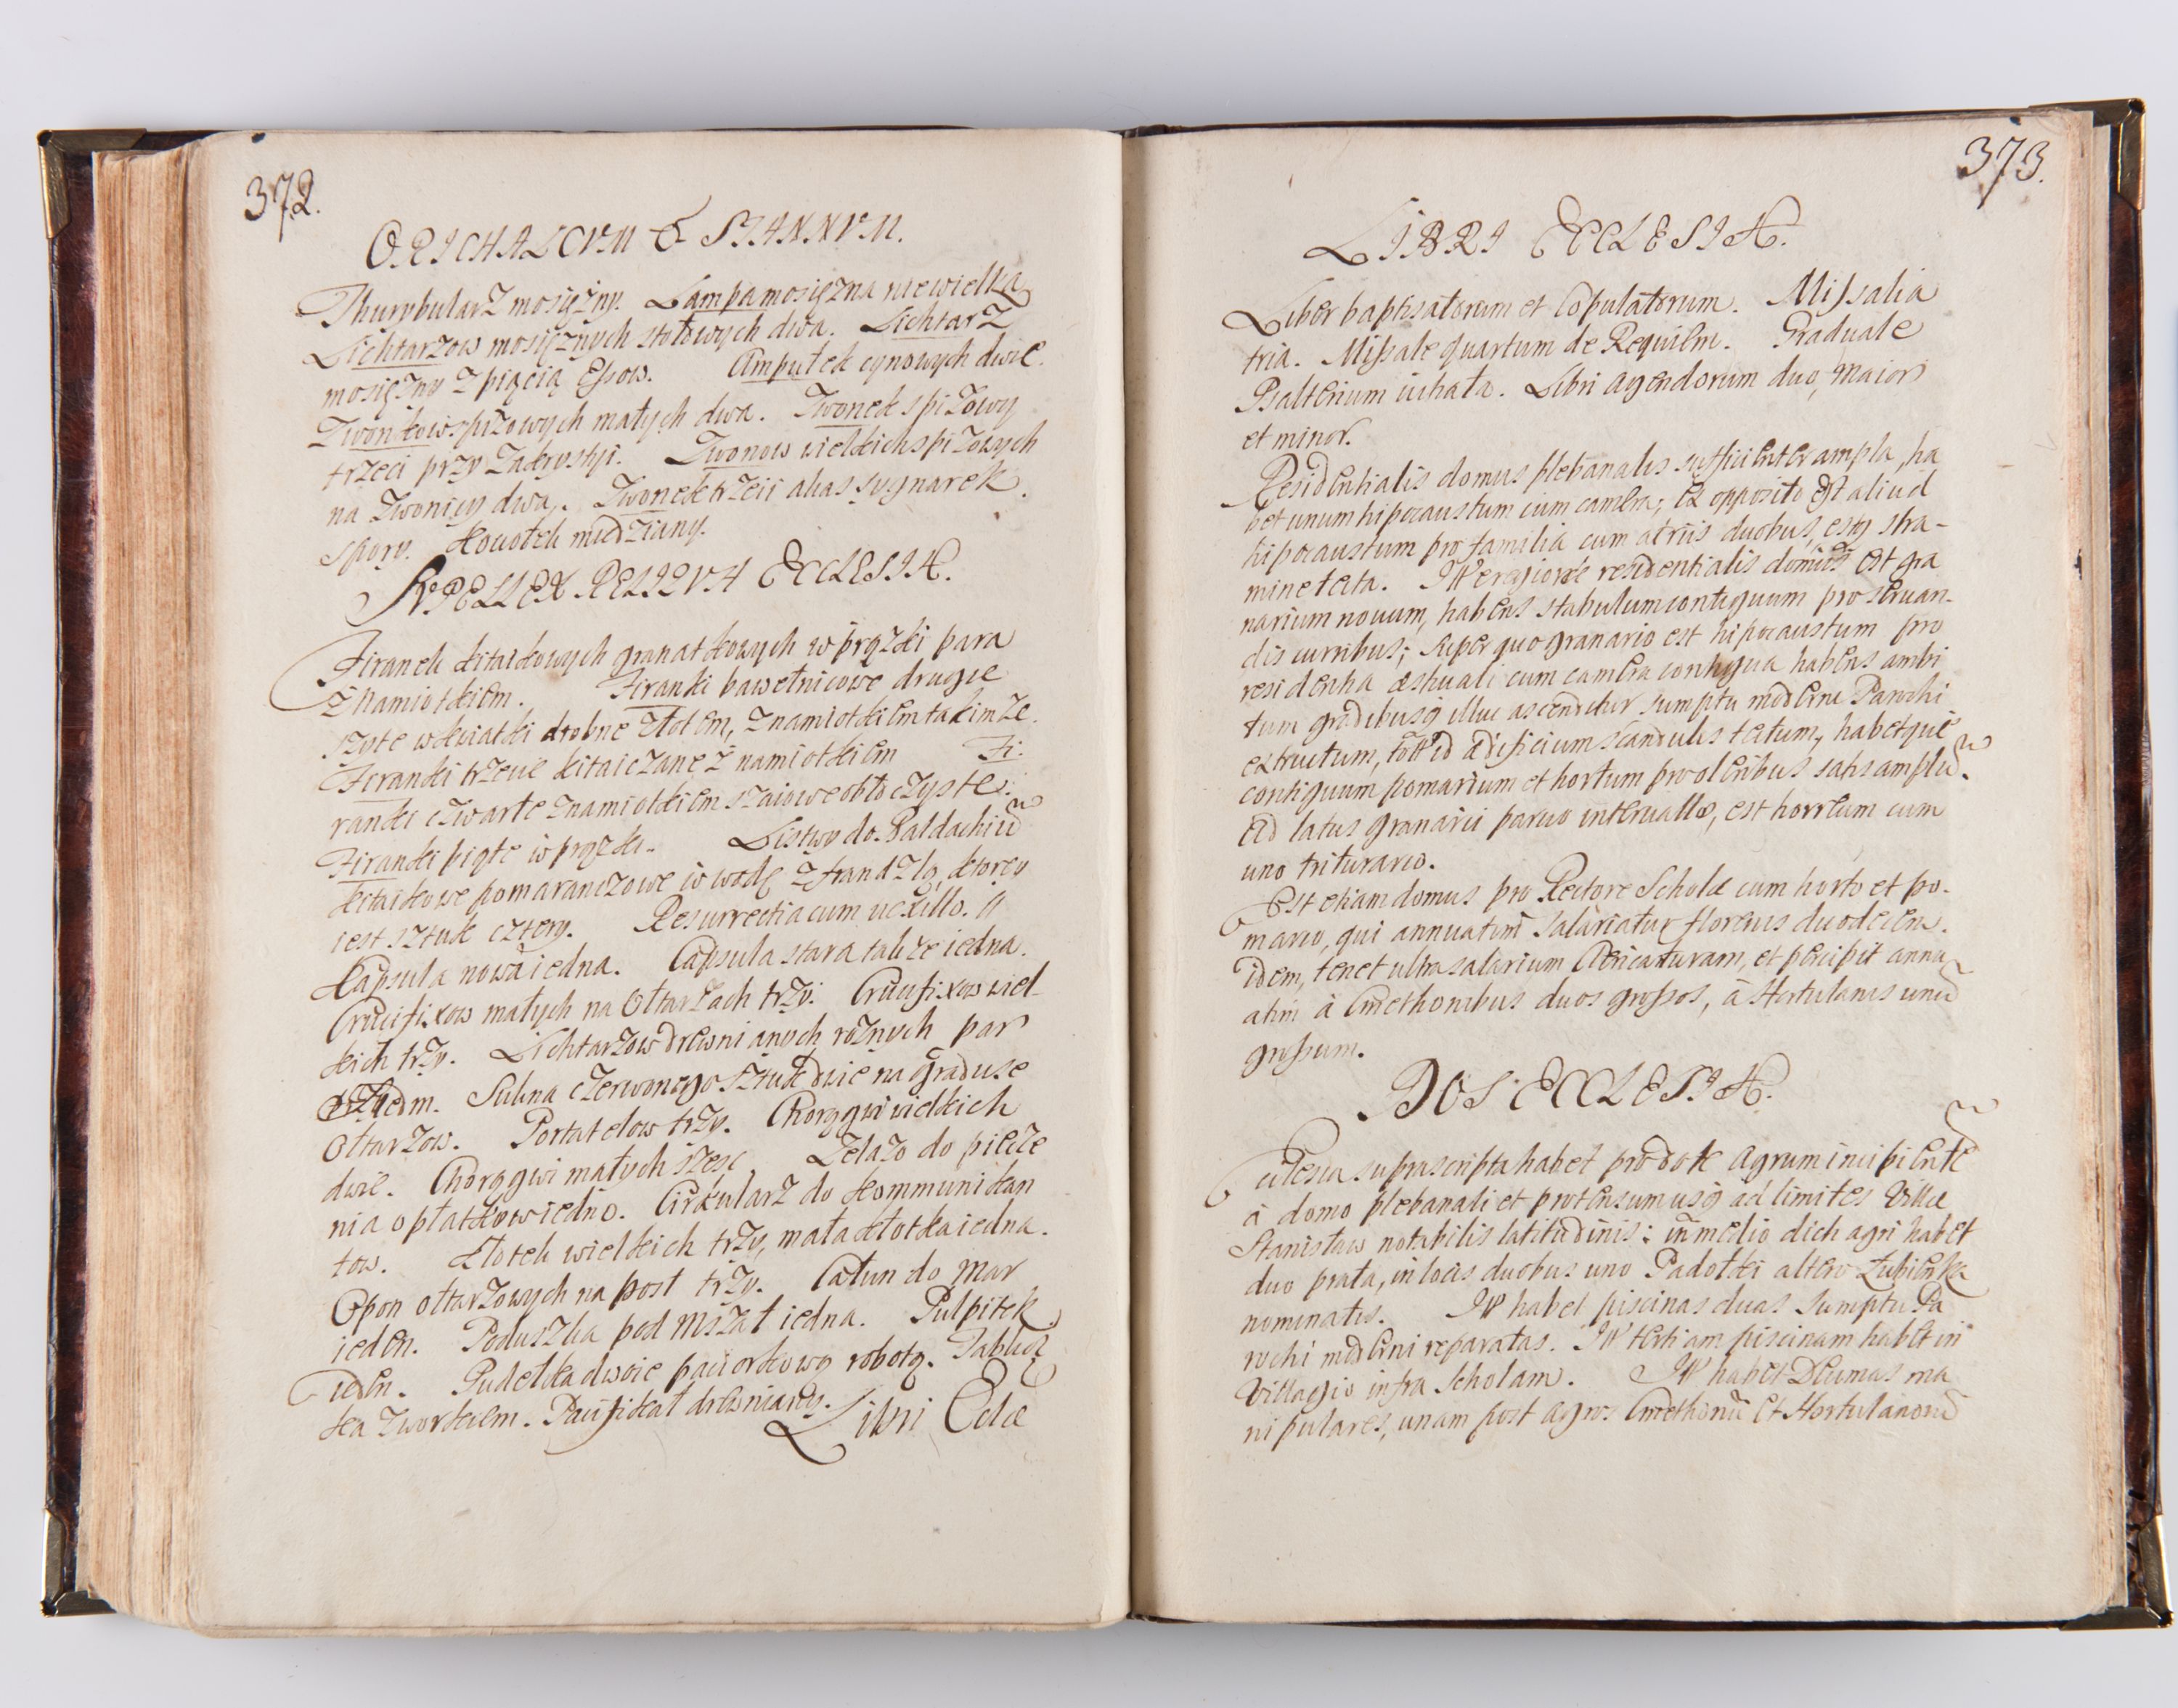 372.
ORICHALCVM & STANNVM.
Thurybularz mosiężny. Lampa mosiężna niewielka
Lichtarzow mosiężnych stołowych dwa. Lichtarz
mosiężny z piącią Esow. Ampułek cynowych dwie.
Zwonkow spiżowych małych dwa. Zwonek spiżowy
trzeci przy Zakrystyi. Zwonow wielkich spiżowych
na Zwonicy dwa. Zwonek trzeci alias sygnarek
spory. Kociołek miedziany.
SVPELLEX RELIQVA ECCLESIÆ.
Firanek kitaikowych granatkowych w prążki para
z Namiotkiem. Firanki bawełnicowe drugie
szyte w kwiatki drobne złotem, z namiotkiem takimże.
Firanki trzecie kitaiczane z namiotkiem Fi:
ranki czwarte z namiotkiem szaiowe obłoczyste.
Firanki piąte w prążki. Listwy do Baldachiũ
kitaikowe pomaranczowe w wodę z frandzlą, ktorey
iest sztuk cztery. Resurrectia cum uexillo. //
Kapsula nowa iedna. Capsula stara takze iedna.
Crucifixow małych na Ołtarzach trzy. Crucifixow wiel-
kich trzy. Lichtarzow drewnianych roznych par
siedm. Sukna czerwonego sztuk dwie na graduse
Ołtarzow. Portatelow trzy. Chorągwi wielkich
dwie. Chorągwi małych szesc. Zelazo do piecze
nia opłatkow iedno. Cirkularz do kommunikan
tow. Kłotek wielkich trzy, mała kłotka iedna.
Opon ołtarzowych na post trzy. Całun do mar
ieden. Poduszka pod mszał iedna. Pulpitek
ieden. Pudełka dwoie paciorkową robotą. Tablicz
ka z workiem. Pacifikał drewniany.
Libri Ecclæ
373.
LIBRI ECCLESIÆ.
Liber baptisatorum et Copulatorum. Missalia
tria. Missale quartum de Requiem. Graduale
Psalterium . Libri Agendorum duo, maior
et minor.
Residentialis domus plebanalis sufficienter ampla, ha
bet unum hipocaustum cum camera; ex opposito est aliud
hipocaustum pro familia cum atriis duobus, estq stra-
mine tecta. It̃ e regione residentialis domus est gra
narium nouum, habens stabulum contiguum pro seruan-
dis curribus; super quo granario est hipocaustum pro
residentia æstuali cum camera contigua habens ambi
tum gradibusq illuc ascenditur sumptu moderni Parochi
extructum, ædificium scandulis tectum, habetque
contiguum pomarium et hortum pro oleribus satis amplũ.
Ad latus granarii paruo interuallo, est horreum cum
uno triturario.
Est etiam domus pro Rectore Scholæ cum horto et po-
mario, qui annuatim salariatur florenis duodecim.
idem, tenet ultra salarium , et percipit annu-
atim à Cmethonibus duos grossos, à Hortulanis unũ
grossum.
DOS ECCLESIÆ.
Ecclesia suprascripta habet pro dote Agrum incipientẽ
à domo plebanali et protensum usq ad limites Villæ
Stanisław notabilis latitudinis: in medio dicti agri habet
duo prata, in locis duobus uno Padołki altero Łubienka
nominatis. It̃ habet piscinas duas sumptu Pa
rochi moderni reparatas. It̃ tertiam piscinam habet in
Villagio infra Scholam. It̃ habet Decimas ma
nipulares, unam post agros Cmethonũ et Hortulanorũ